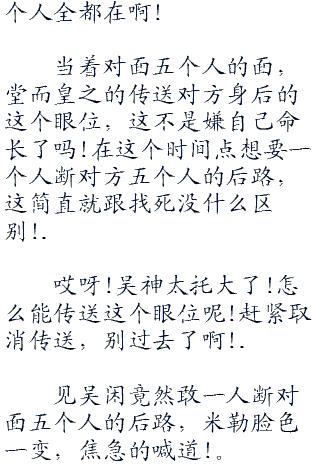 个人全都在啊!
当着对面五个人的面，
堂而皇之的传送对方身后的
这个眼位，这不是嫌自己命
长了吗!在这个时间点想要一
个人断对方五个人的后路，
这简直就跟找死没什么区
别!.
哎呀!吴神太托大了!怎
么能传送这个眼位呢!赶紧取
消传送，别过去了啊!.
见吴闲竟然敢一人断对
面五个人的后路，米勒脸色
一变，焦急的喊道!。